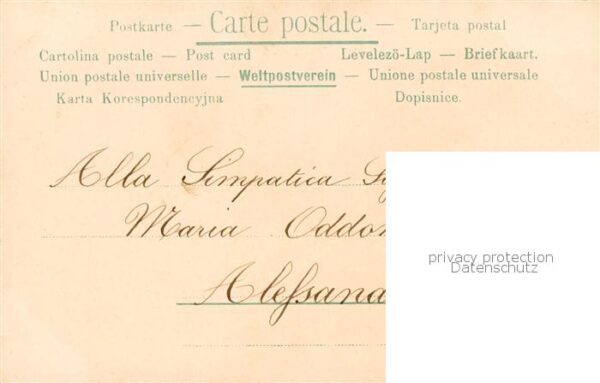 Postkarte — Carte postale. — Tarjeta postal
Cartolina postale — Post card Levelezö-Lap — Briefkaart.
Union postale universelle — Weltpostverein — Unione postale universale
Karta Korespondencyjna Dopisnice.
Alla Simpatica
Maria Oddon
Alessand
privacy protection
Datenschutz